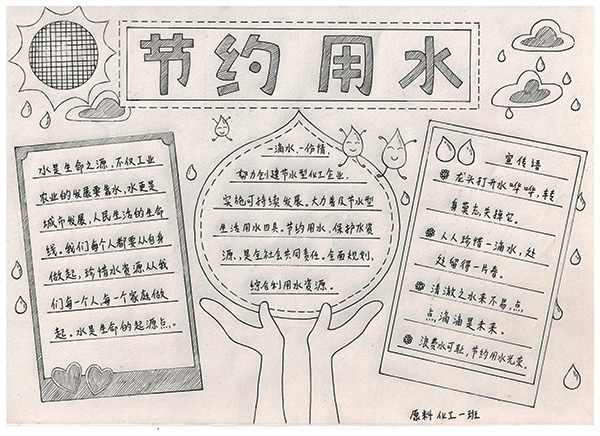 节约用水
水是生命之源，不仅工业
农业的发展要靠水，水更是
城市发展，人民生活的生命
线。我们每个人都要从自身
做起，珍惜水资源从我
们每一个人，每一个家庭做
起。水是生命的起源点。
一滴水，一份情
努力创建节水型化工企业，
实施可持续发展。大力普及节水型
生活用水口具。节约用水，保护水资
源，是全社会共同责任。全面规划，
综合利用水资源。
宣传语
龙头打开水哗哗，转
身莫忘关掉它。
人人珍惜一滴水，处
处留得一片春。
清澈之水来不易，点
点滴滴是未来。
浪费水可耻，节约用水光荣。
原料 化工一班